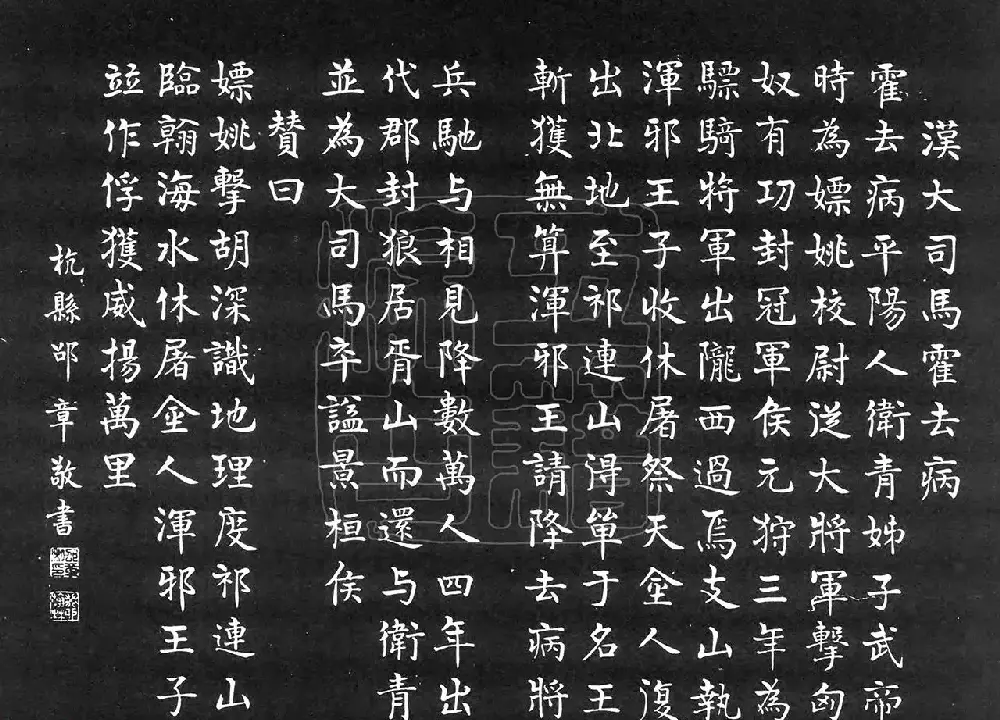 漢大司馬霍去病
霍去病平陽人衛青姊子武帝
時為嫖姚校尉從大將軍擊匈
奴有功封冠軍侯元狩三年為
驃騎將軍出隴西過焉支山執
渾邪王子收休屠祭天金人復
出北地至祁連山得單于名王
斬獲無算渾邪王請降去病將
兵馳与相見降數萬人四年出
代郡封狼居胥山而還与衛青
並為大司馬卒謚景桓侯
贊曰
嫖姚擊胡深識地理度祁連山
臨翰海水休屠金人渾邪王子
竝作俘獲威揚萬里
杭縣邵章敬書